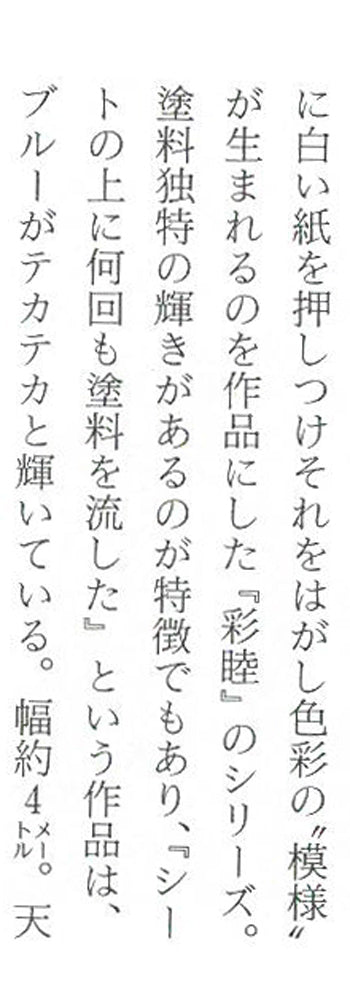 に白い紙を押しつけそれをはがし色彩の〝模様〟
が生まれるのを作品にした『彩睦』のシリーズ。
塗料独特の輝きがあるのが特徴でもあり、『シー
トの上に何回も塗料を流した』という作品は、
ブルーがテカテカと輝いている。幅約4㍍。天